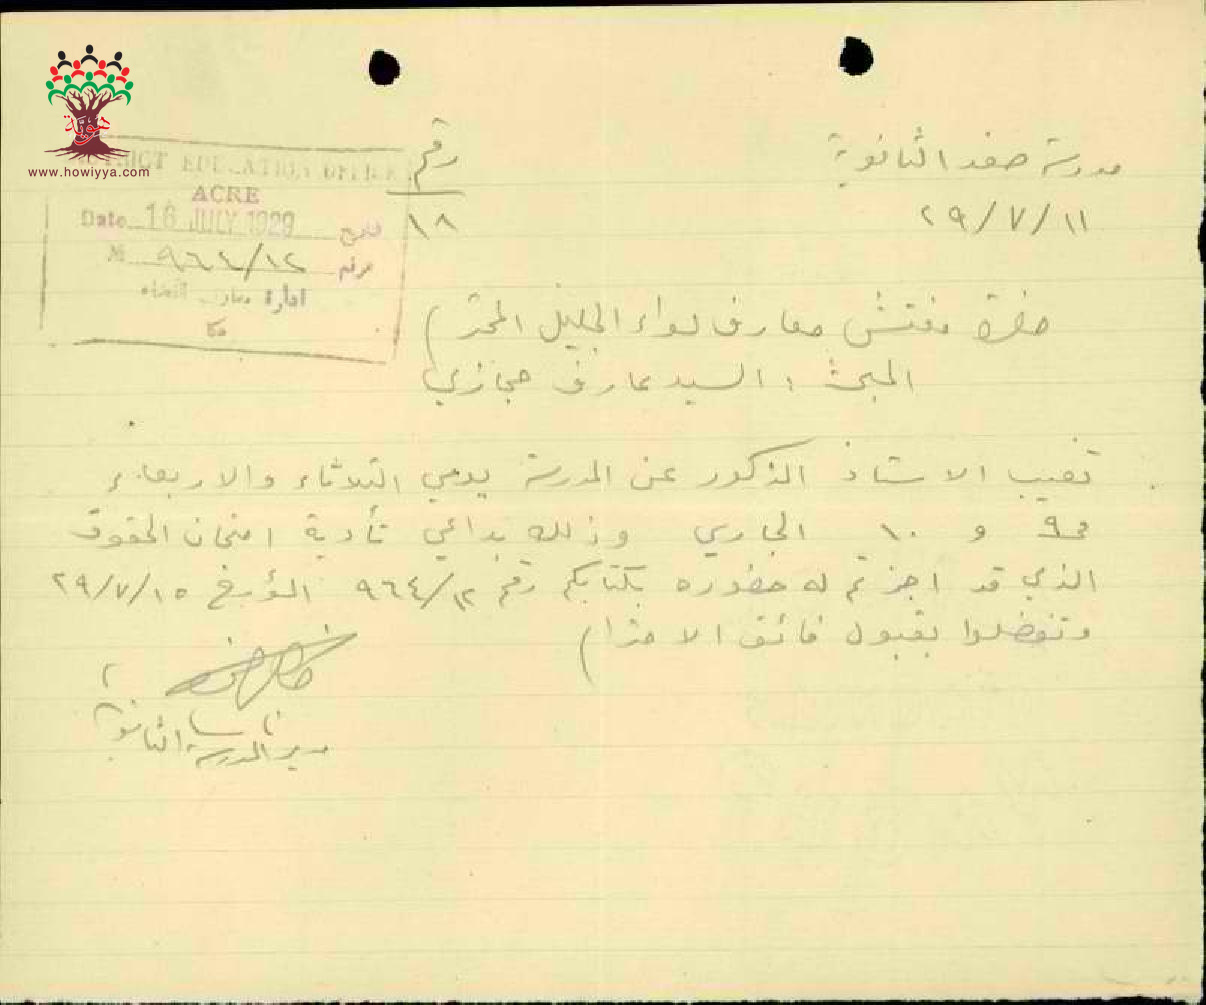 www.howiyya.com
DISTRICT EDUCATION OFFICE
ACRE
Date 16 JULY 1929 تاريخ
№ ٩٦٤/١٢ نمرة
ادارة معارف
عكا
رقم
١٨
مدرسة صفد الثانوية
٢٩/٧/١١
حضرة مفتش معارف لواء الجليل المحترم
المبحث : السيد عارف حجازي
تغيب الاستاذ المذكور عن المدرسة يومي الثلاثاء والاربعاء
في ٩ و ١٠ الجاري وذلك بداعي تأدية امتحان الحقوق
الذي قد اجزتم له حضوره بكتابكم رقم ٩٦٤/١٢ المؤرخ ٢٩/٧/١٥
وتفضلوا بقبول فائق الاحترام
مدير المدرسة الثانوية